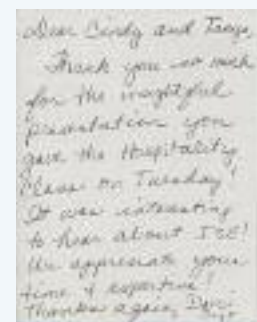 Dear Cindy and Tanya,
Thank you so much
for the insightful
presentation you
gave the Hospitality
Class on Tuesday!
It was interesting
to hear about ICE!
We appreciate your
time & expertise!
Thanks again,